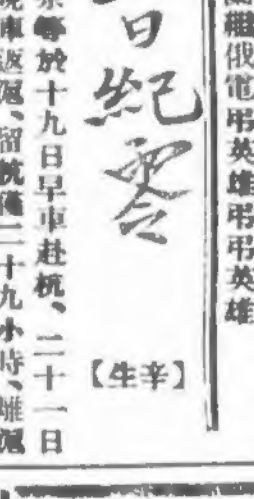 艦俄電弔英雄弔弔英雄
日紀零
【辛生】
等於十九日早車赴杭、二十一日
車返滬、留杭僅二十九小時、離滬